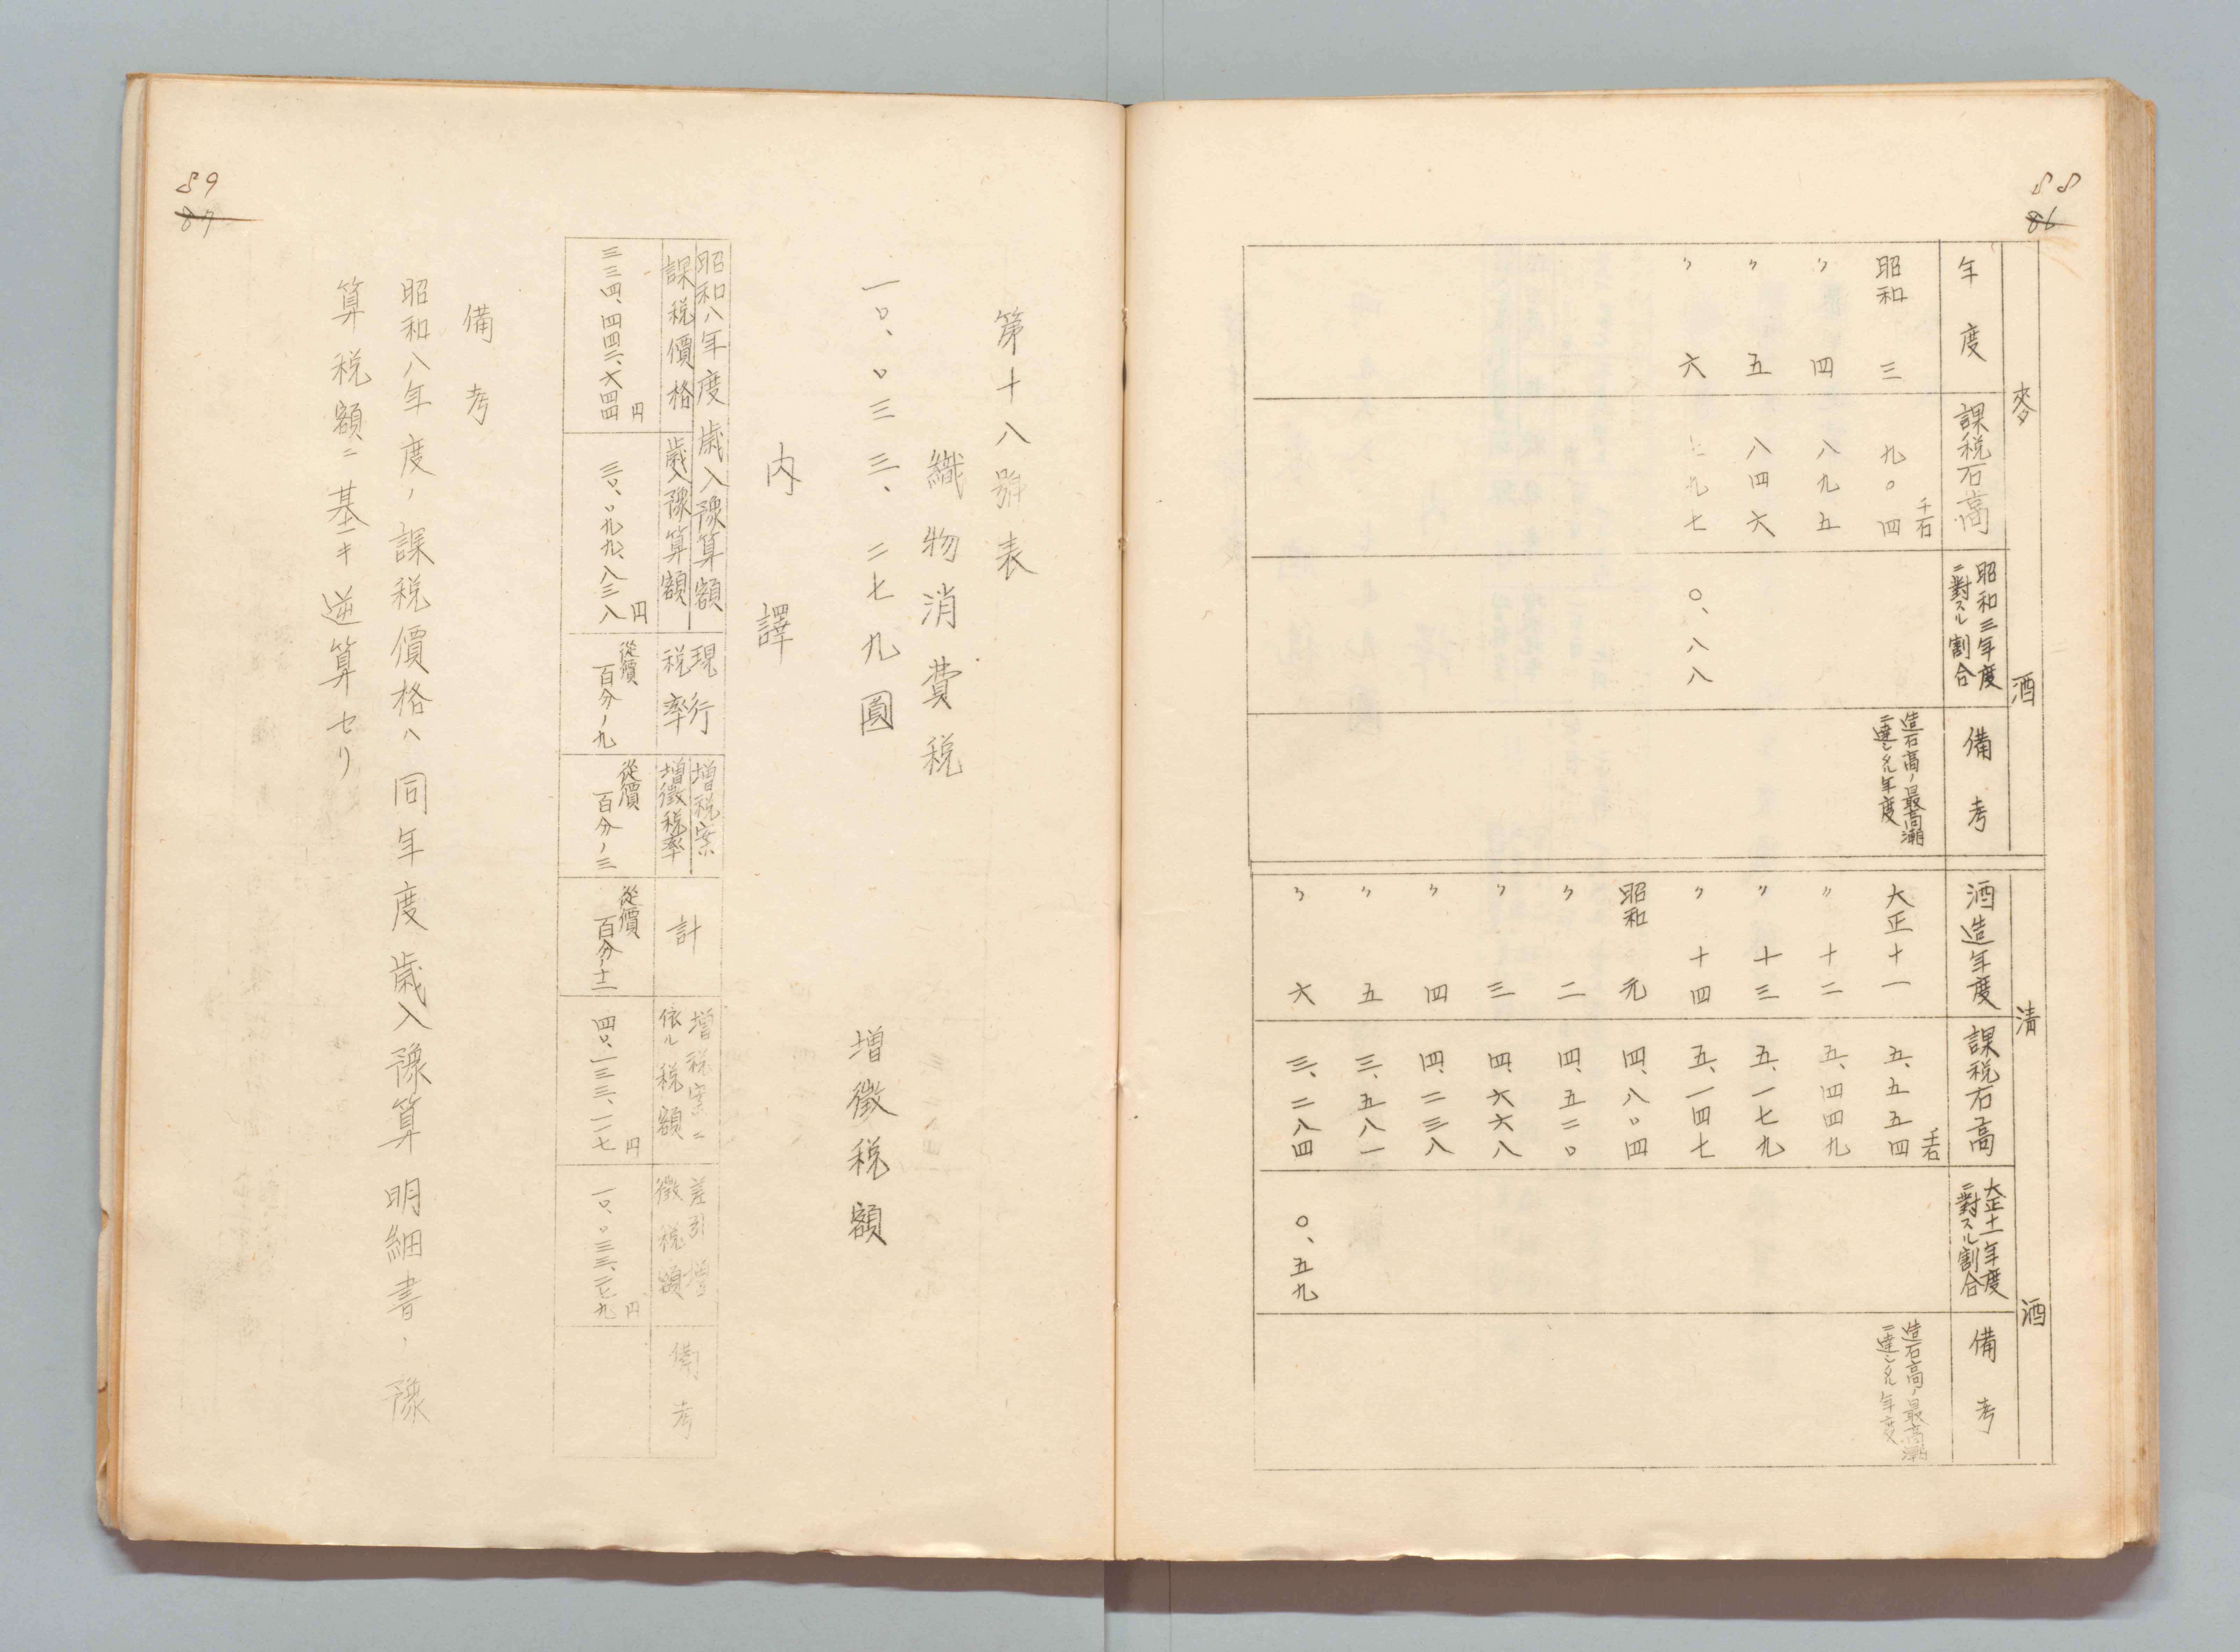 88
86
麥酒
年度
課税石高
昭和三年度
ニ對スル割合
備考
千石
昭和三 九〇四
造石高ノ最高潮
ニ達シタル年度
〃四 八九五
〃五 八四六
〃六 七九七 〇、八八
清酒
酒造年度
課税石高
大正十一年度
ニ對スル割合
備考
千石
大正十一 五、五五四
造石高ノ最高潮
ニ達シタル年度
〃十二 五、四四九
〃十三 五、一七九
〃十四 五、一四七
昭和元 四、八〇四
〃二 四、五二〇
〃三 四、六六八
〃四 四、二三八
〃五 三、五八一
〃六 三、二八四 〇、五九
89
87
第十八號表
織物消費税
一〇、〇三三、二七九圓 増徴税額
内譯
昭和八年度歳入豫算額
課税價格
歳入豫算額
現行
税率
増税案
増徴税率
計
増税案ニ
依ル税額
差引増
徴税額
備考
三三四、四四二、六四四円
三〇、〇九九、八三八円
從價
百分ノ九
從價
百分ノ三
從價
百分ノ十二
四〇、一三三、一一七円
一〇、〇三三、二七九円
備考
昭和八年度ノ課税價格ハ同年度歳入豫算明細書ノ豫
算税額ニ基キ逆算セリ